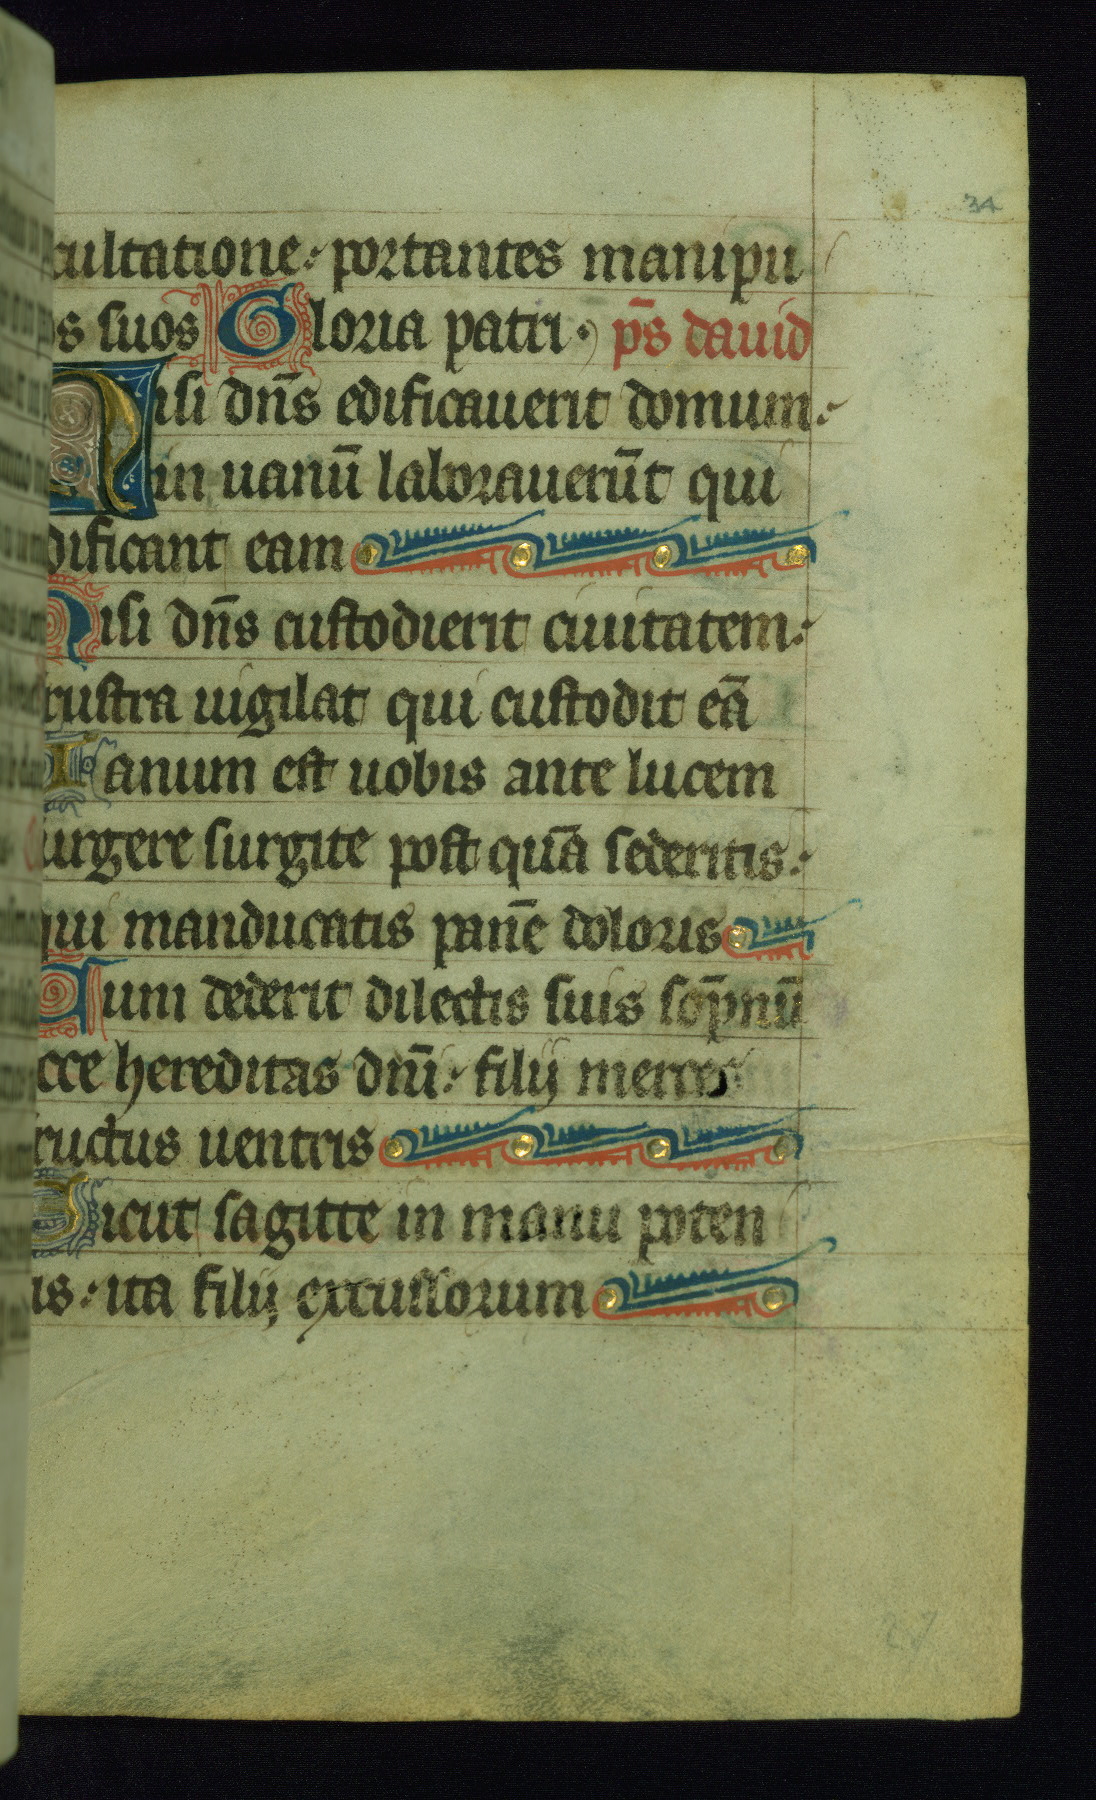 34
cultatione: portantes manipu
os suos Gloria patri. p̄s dauid
Nisi dn̄s edificauerit domum:
in uanū laborauerūt qui
dificant eam
Nisi dn̄s custodierit ciuitatem:
frustra uigilat qui custodit eā
Uanum est uobis ante lucem
surgere surgite post quā sederitis:
qui manducatis panē doloris
Cum dederit dilectis suis sop̄nū
ecce hereditas dn̄i: filij merces
fructus uentris
Sicut sagitte in manu poten
tis: ita filij excussorum
27